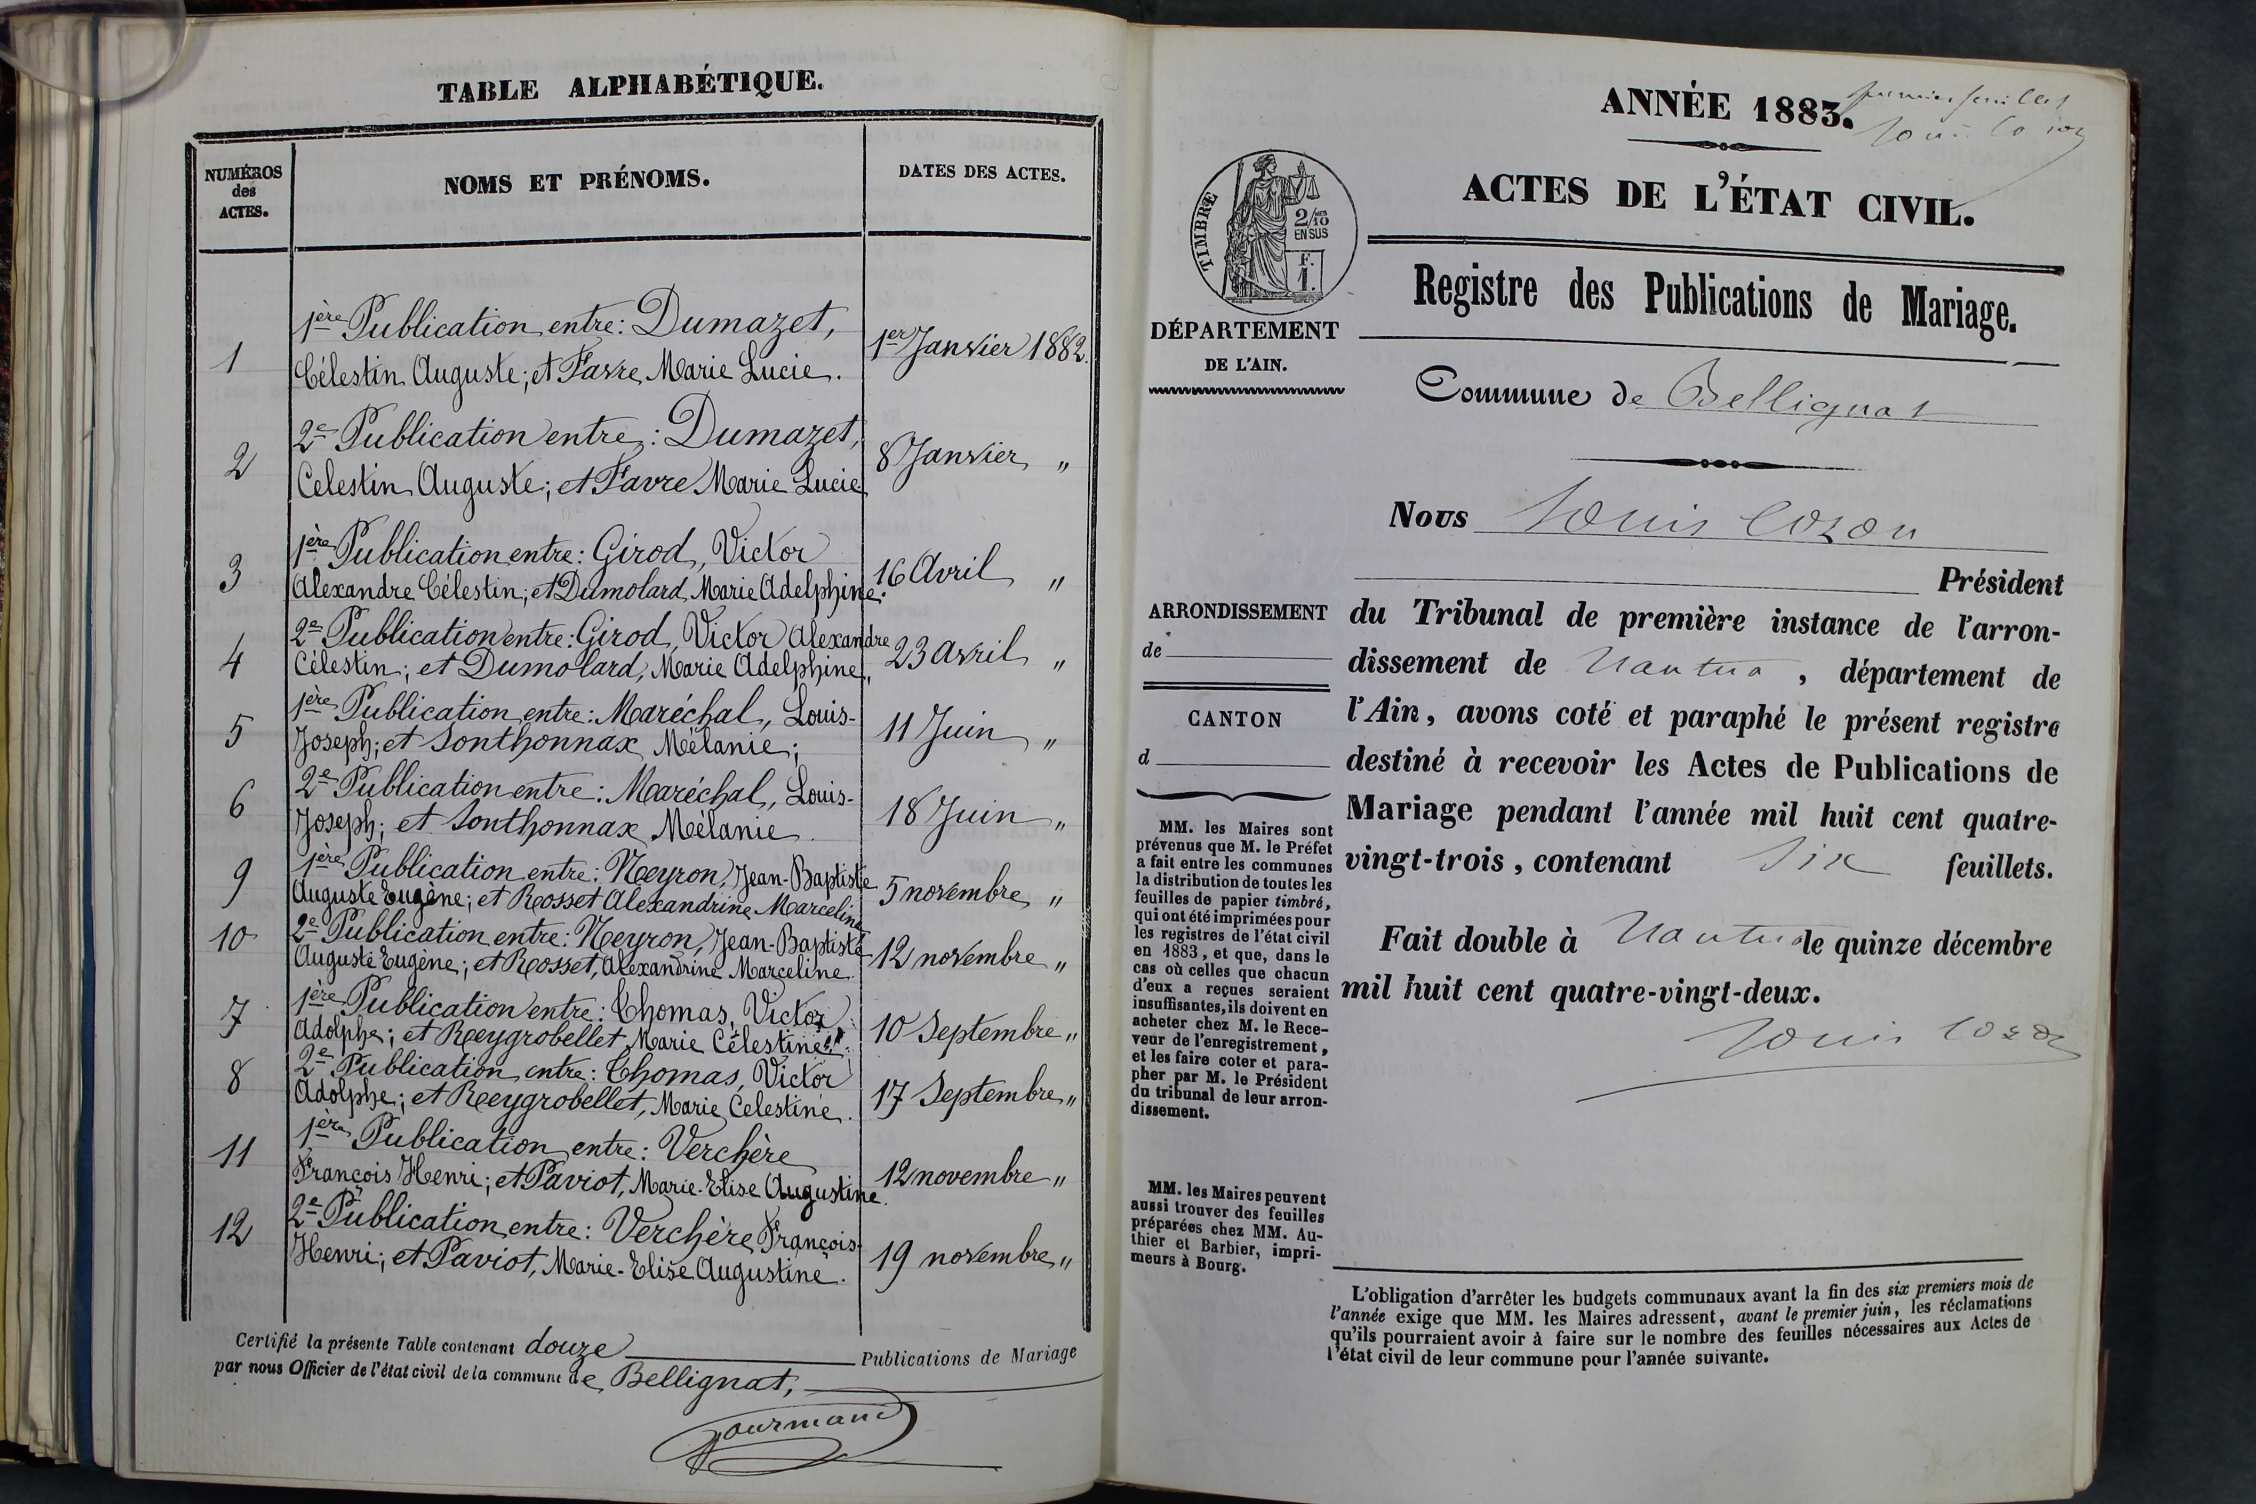 TABLE ALPHABÉTIQUE.
NUMÉROS
des
ACTES.
NOMS ET PRÉNOMS.
DATES DES ACTES.
1
1ère Publication entre: Dumazet,
Célestin Auguste; et Favre Marie Lucie.
1er Janvier 1882.
2
2e Publication entre: Dumazet,
Celestin Auguste; et Favre Marie Lucie
8 Janvier "
3
1ère Publication entre: Girod, Victor
Alexandre Célestin; et Dumolard, Marie Adelphine.
16 Avril "
4
2e Publication entre: Girod, Victor Alexandre
Célestin; et Dumolard, Marie Adelphine,
23 avril "
5
1ère Publication entre: Maréchal, Louis-
Joseph; et Sonthonnax Mélanie;
11 Juin "
6
2e Publication entre: Maréchal, Louis-
Joseph; et Sonthonnax Mélanie.
18 Juin "
9
1ère Publication entre: Neyron, Jean-Baptiste
Auguste Eugène; et Rosset Alexandrine Marceline
5 novembre "
10
2e Publication entre: Neyron, Jean-Baptiste
Auguste Eugène; et Rosset, Alexandrine Marceline.
12 novembre "
7
1ère Publication entre: Thomas, Victor
Adolphe; et Reygrobellet Marie Célestine
10 Septembre "
8
2e Publication entre: Thomas, Victor
Adolphe; et Reygrobellet, Marie Celestine.
17 Septembre "
11
1ère Publication entre: Verchère
François Henri; et Paviot, Marie-Elise Augustine.
12 novembre "
12
2e Publication entre: Verchère François-
Henri; et Paviot, Marie-Elise Augustine.
19 novembre "
Certifié la présente Table contenant douze Publications de Mariage
par nous Officier de l'état civil de la commune de Bellignat,
Gourmand
ANNÉE 1883.
premier feuillet
Louis Cozon
ACTES DE L'ÉTAT CIVIL.
TIMBRE
2/10
EN SUS
F.
1.
Registre des Publications de Mariage.
DÉPARTEMENT
DE L'AIN.
Commune de Bellignat
Nous Louis Cozon
Président
ARRONDISSEMENT
de
CANTON
d
du Tribunal de première instance de l'arron-
dissement de Nantua, département de
l'Ain, avons coté et paraphé le présent registre
destiné à recevoir les Actes de Publications de
Mariage pendant l'année mil huit cent quatre-
vingt-trois, contenant six feuillets.
Fait double à Nantua le quinze décembre
mil huit cent quatre-vingt-deux.
Louis Cozon
MM. les Maires sont
prévenus que M. le Préfet
a fait entre les communes
la distribution de toutes les
feuilles de papier timbré,
qui ont été imprimées pour
les registres de l'état civil
en 1883, et que, dans le
cas où celles que chacun
d'eux a reçues seraient
insuffisantes, ils doivent en
acheter chez M. le Rece-
veur de l'enregistrement,
et les faire coter et para-
pher par M. le Président
du tribunal de leur arron-
dissement.
MM. les Maires peuvent
aussi trouver des feuilles
préparées chez MM. Au-
thier et Barbier, impri-
meurs à Bourg.
L'obligation d'arrêter les budgets communaux avant la fin des six premiers mois de
l'année exige que MM. les Maires adressent, avant le premier juin, les réclamations
qu'ils pourraient avoir à faire sur le nombre des feuilles nécessaires aux Actes de
l'état civil de leur commune pour l'année suivante.